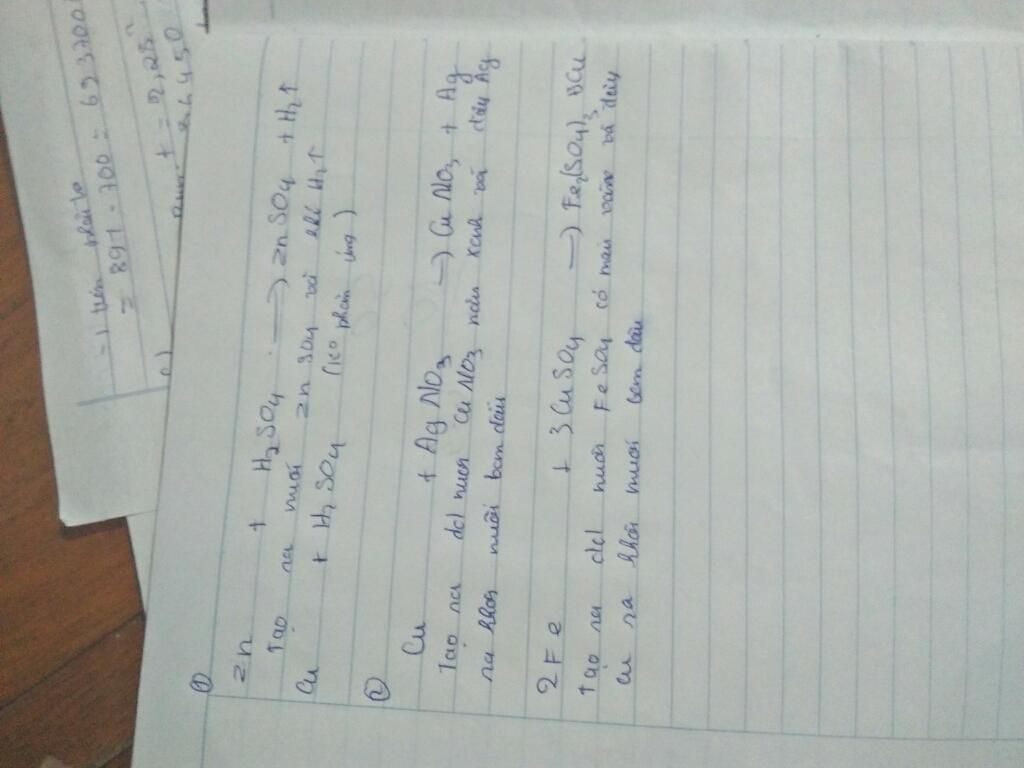 =) trên phải là
= 891.700 = 693700
+ = 2,25
①
Zn + H2SO4 —) ZnSO4 + H2↑
Tạo ra muối ZnSO4 và khí H2↑
Cu + H2SO4 (ko phản ứng)
②
Cu + AgNO3 —) CuNO3 + Ag
Tạo ra dd muối CuNO3 màu xanh và đẩy Ag
ra khỏi muối ban đầu
2Fe + 3CuSO4 —) Fe2(SO4)3 3Cu
Tạo ra dd muối FeSO4 có màu và đẩy
Cu ra khỏi muối ban đầu